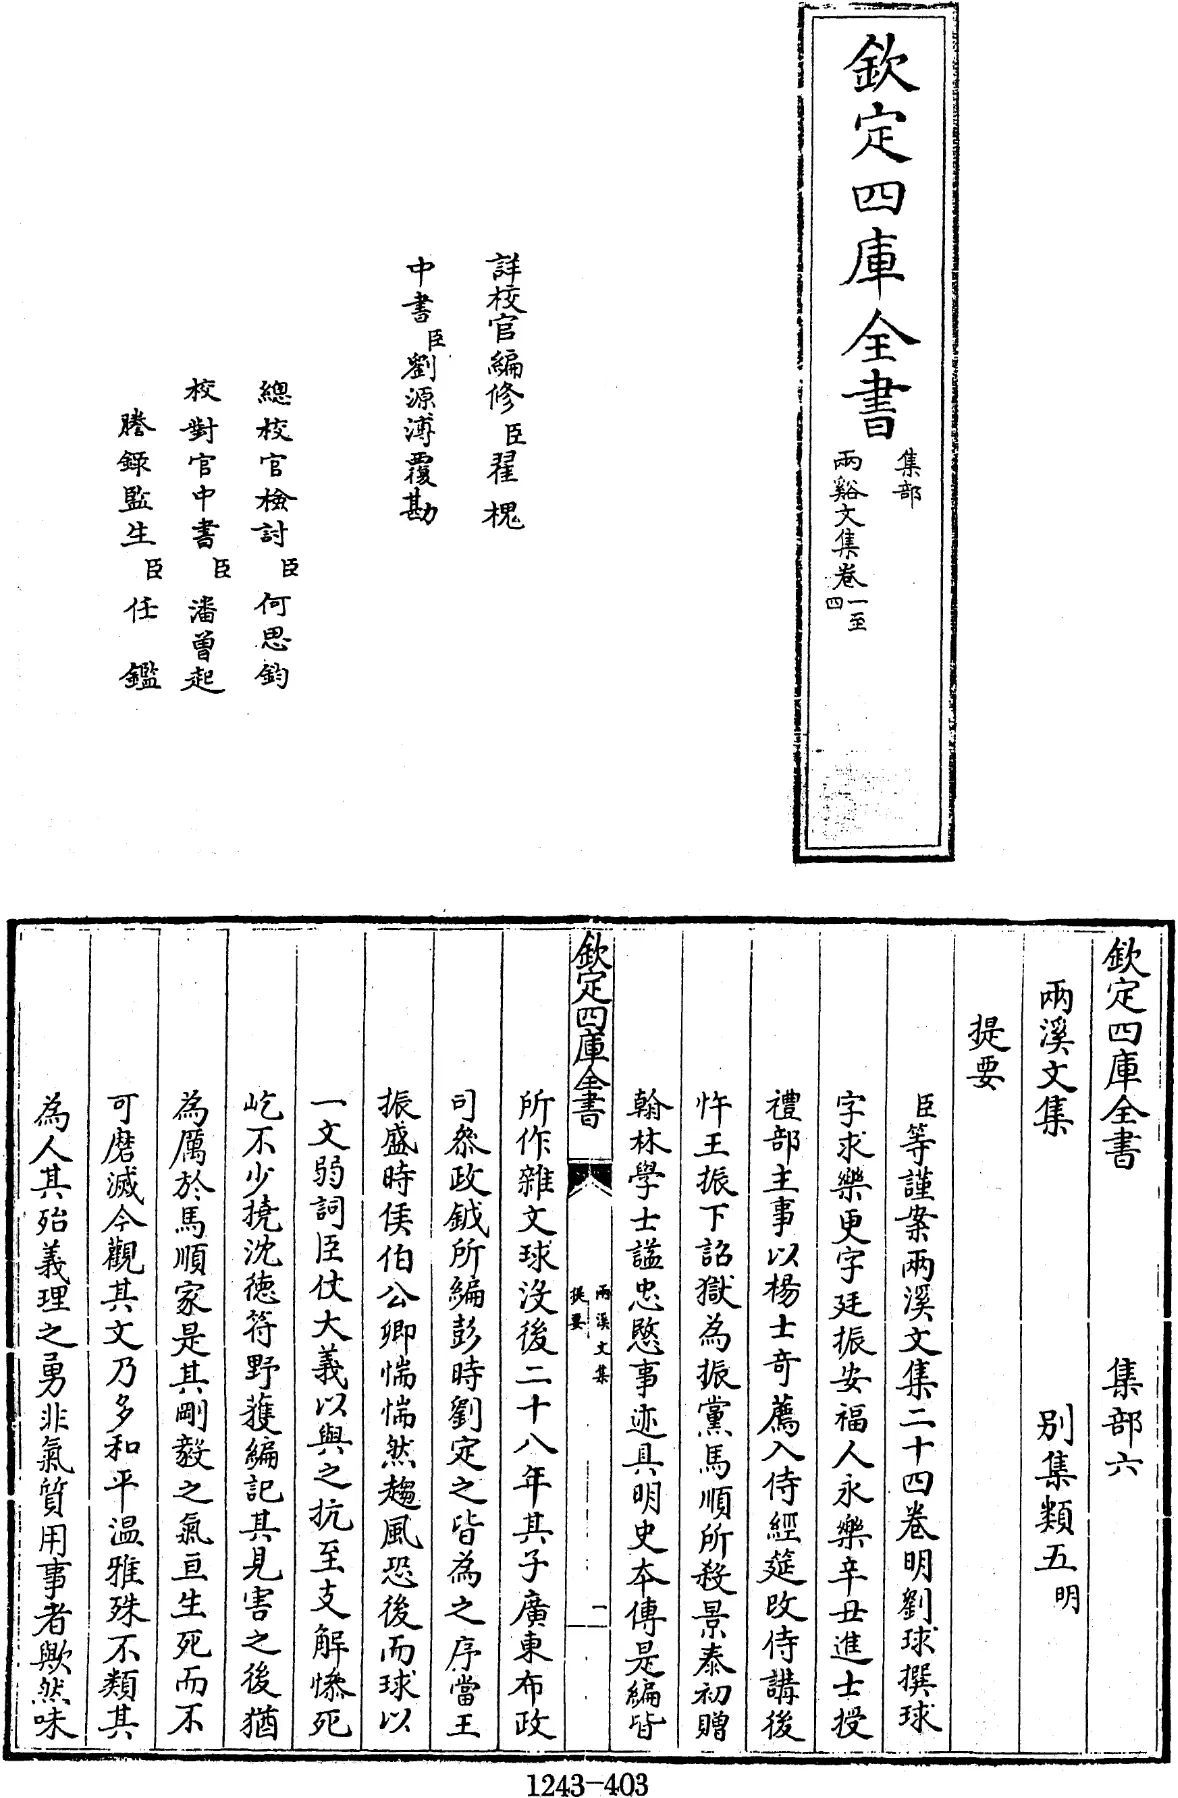 欽定四庫全書
集部
兩谿文集卷一至
四
詳校官編修臣翟槐
中書臣劉源溥覆勘
總校官檢討臣何思鈞
校對官中書臣潘曾起
謄錄監生臣任鑑
欽定四庫全書 集部六
兩溪文集 別集類五明
提要
臣等謹案兩溪文集二十四卷明劉球撰球
字求樂更字廷振安福人永樂辛丑進士授
禮部主事以楊士奇薦入侍經筵改侍講後
忤王振下詔獄為振黨馬順所殺景泰初贈
翰林學士諡忠愍事迹具明史本傳是編皆
欽定四庫全書
兩溪文集
提要
一
所作雜文球沒後二十八年其子廣東布政
司叅政鉞所編彭時劉定之皆為之序當王
振盛時侯伯公卿惴惴然趨風恐後而球以
一文弱詞臣仗大義以與之抗至支解慘死
屹不少撓沈德符野獲編記其見害之後猶
為厲於馬順家是其剛毅之氣亘生死而不
可磨滅今觀其文乃多和平溫雅殊不類其
為人其殆義理之勇非氣質用事者歟然味
1243-403